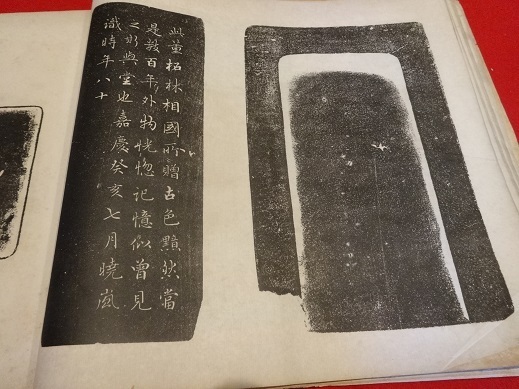 此董柘林相國所贈古色黯然當
是數百年外物恍惚记憶似曾見
之與堂也嘉慶癸亥七月曉嵐
識時年八十